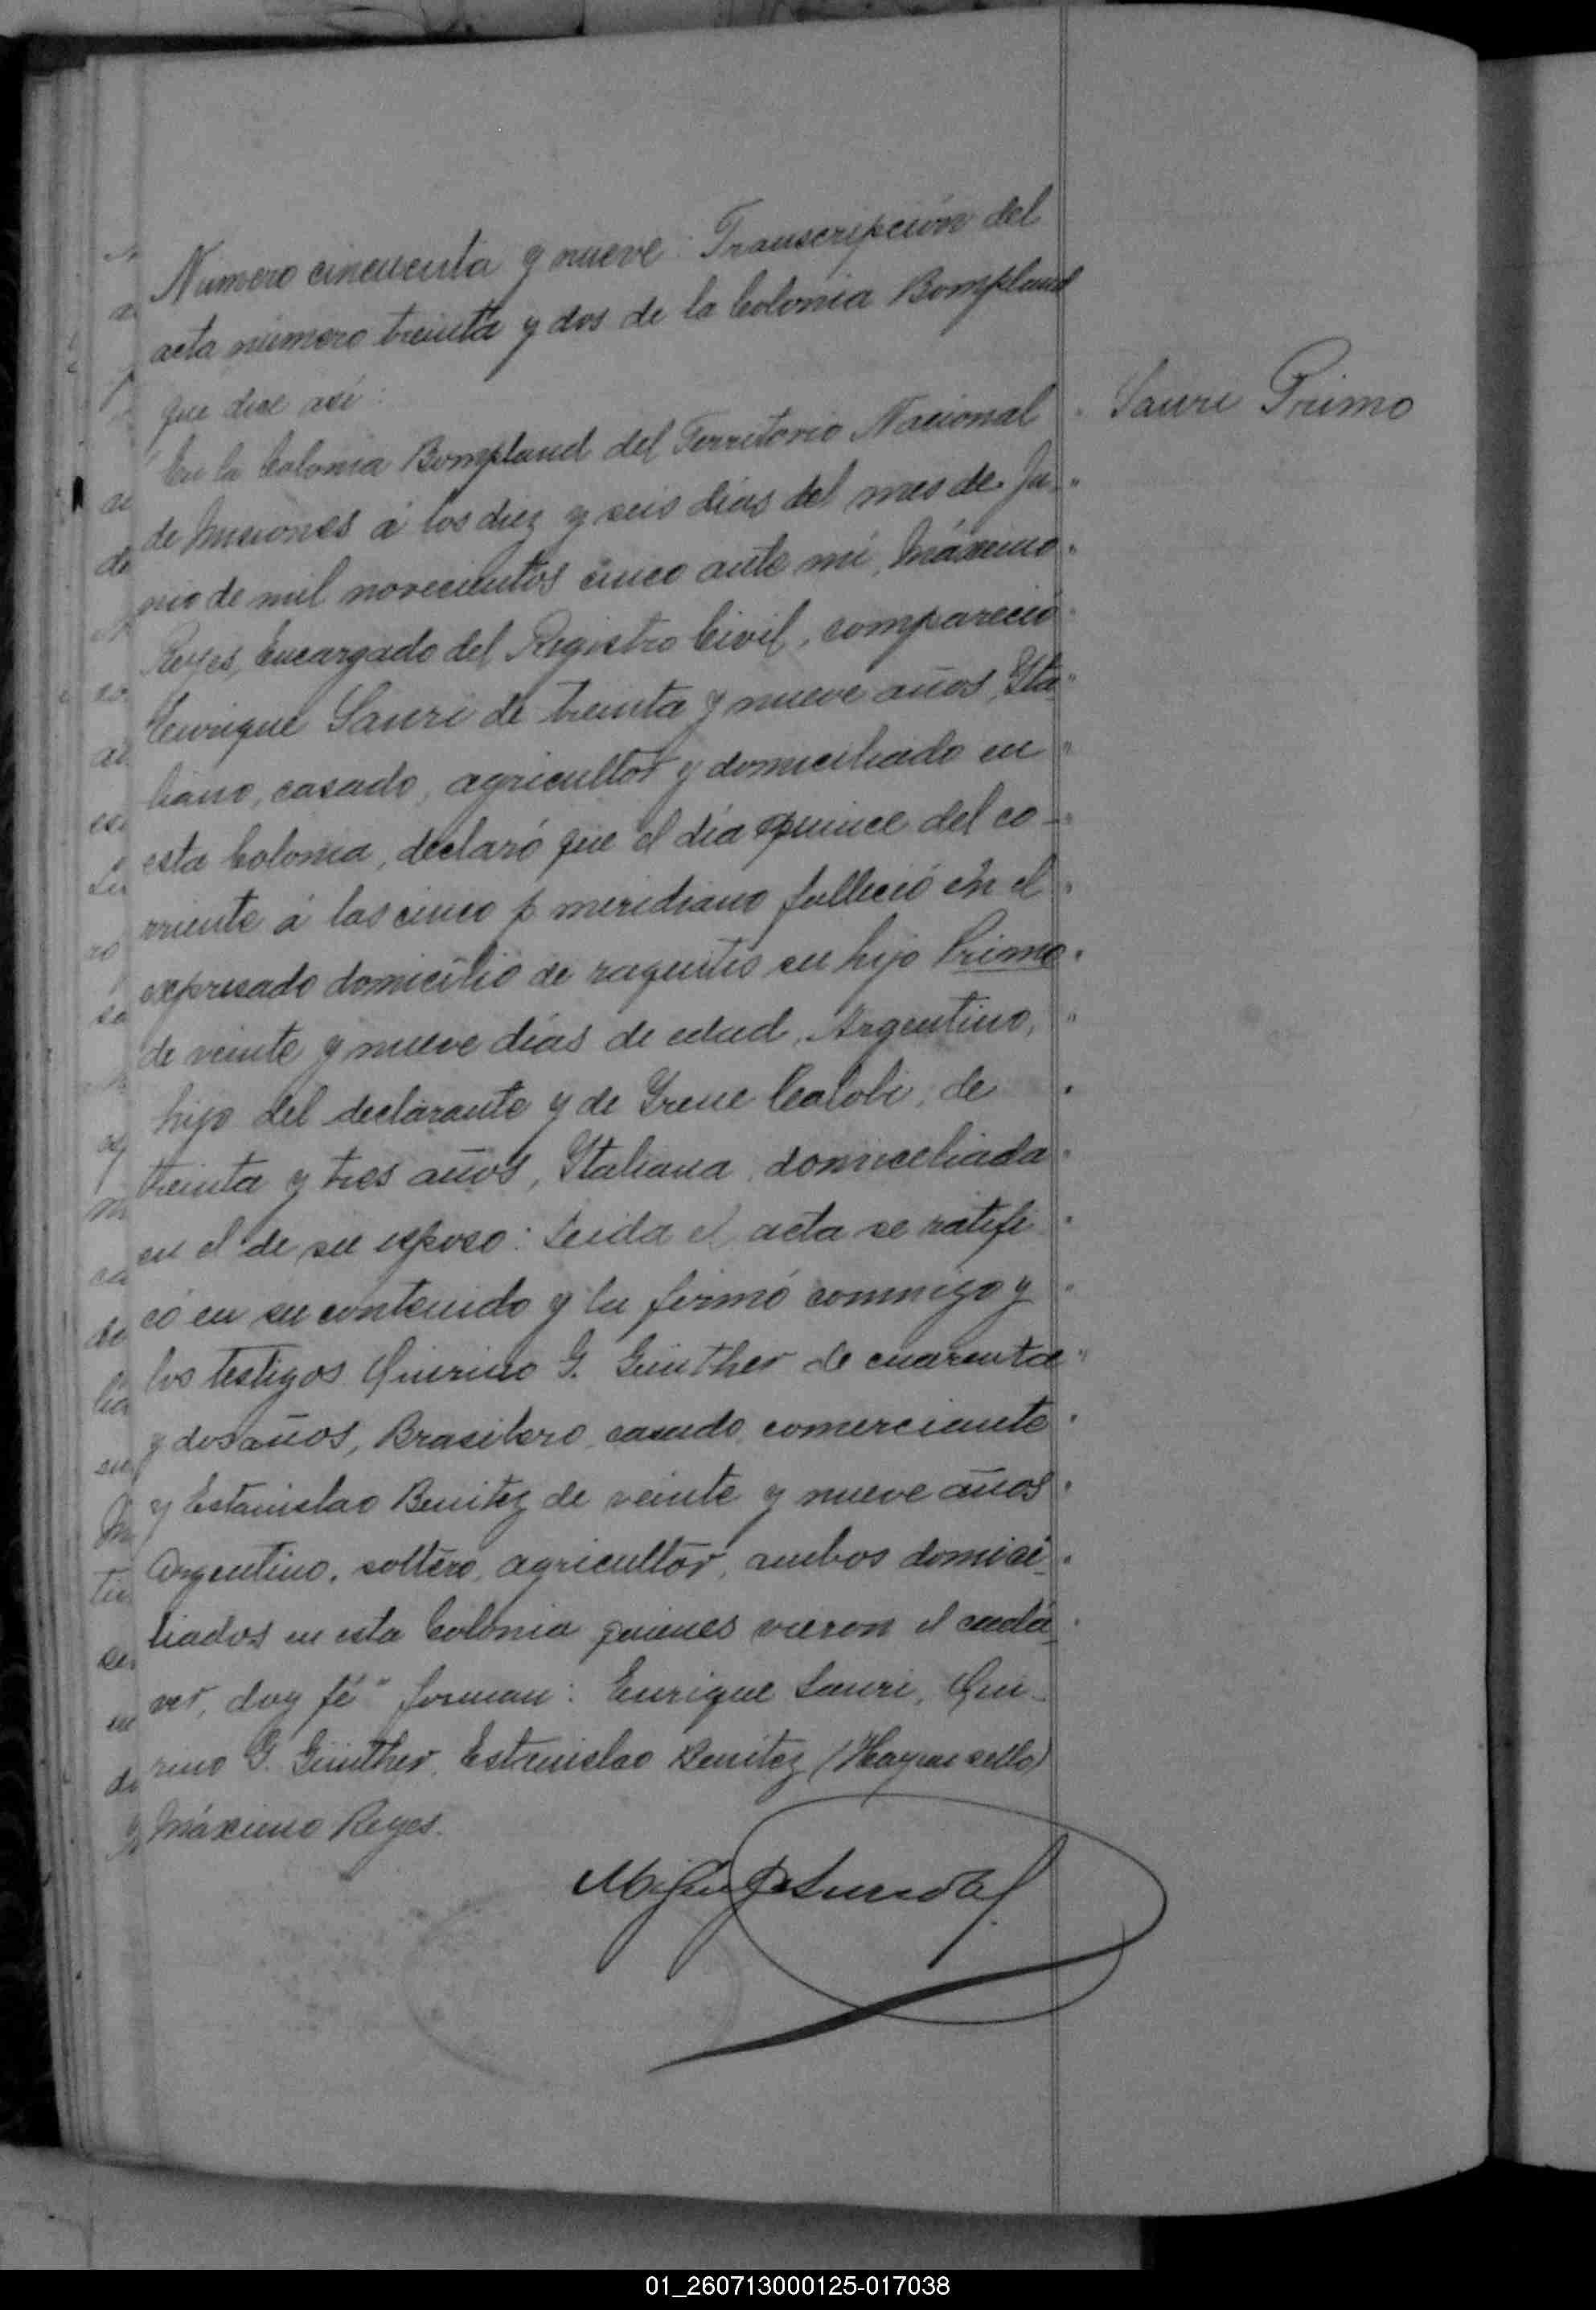 Numero cincuenta y nueve: Transcripción del
acta número treinta y dos de la Colonia Bompland
que dice así:
Saure Primo
"En la Colonia Bompland del Territorio Nacional
de Misiones á los diez y seis dias del mes de Ju-
nio de mil novecientos cinco ante mí, Máximo
Reyes, Encargado del Registro Civil, compareció
Enrique Saure de treinta y nueve años, Ita-
liano, casado, agricultor y domiciliado en
esta Colonia, declaró que el día quince del co-
rriente á las cinco p. meridiano falleció en el
expresado domicilio de raquitis su hijo Primo
de veinte y nueve días de edad, Argentino,
hijo del declarante y de Irene, de
treinta y tres años, Italiana, domiciliada
en el de su esposo: Leida el acta se ratifi
có en su contenido y la firmó conmigo y
los testigos Quirino G. Günther de cuarenta
y dos años, Brasilero, casado, comerciante
y Estanislao Benitez de veinte y nueve años
Argentino, soltero, agricultor, ambos domici-
liados en esta Colonia quienes vieron el cadá-
ver, doy fé" firman: Enrique Sauri, Qui-
rino G. Günther, Estanislao Benitez (Hay un sello)
Máximo Reyes.
01_260713000125-017038